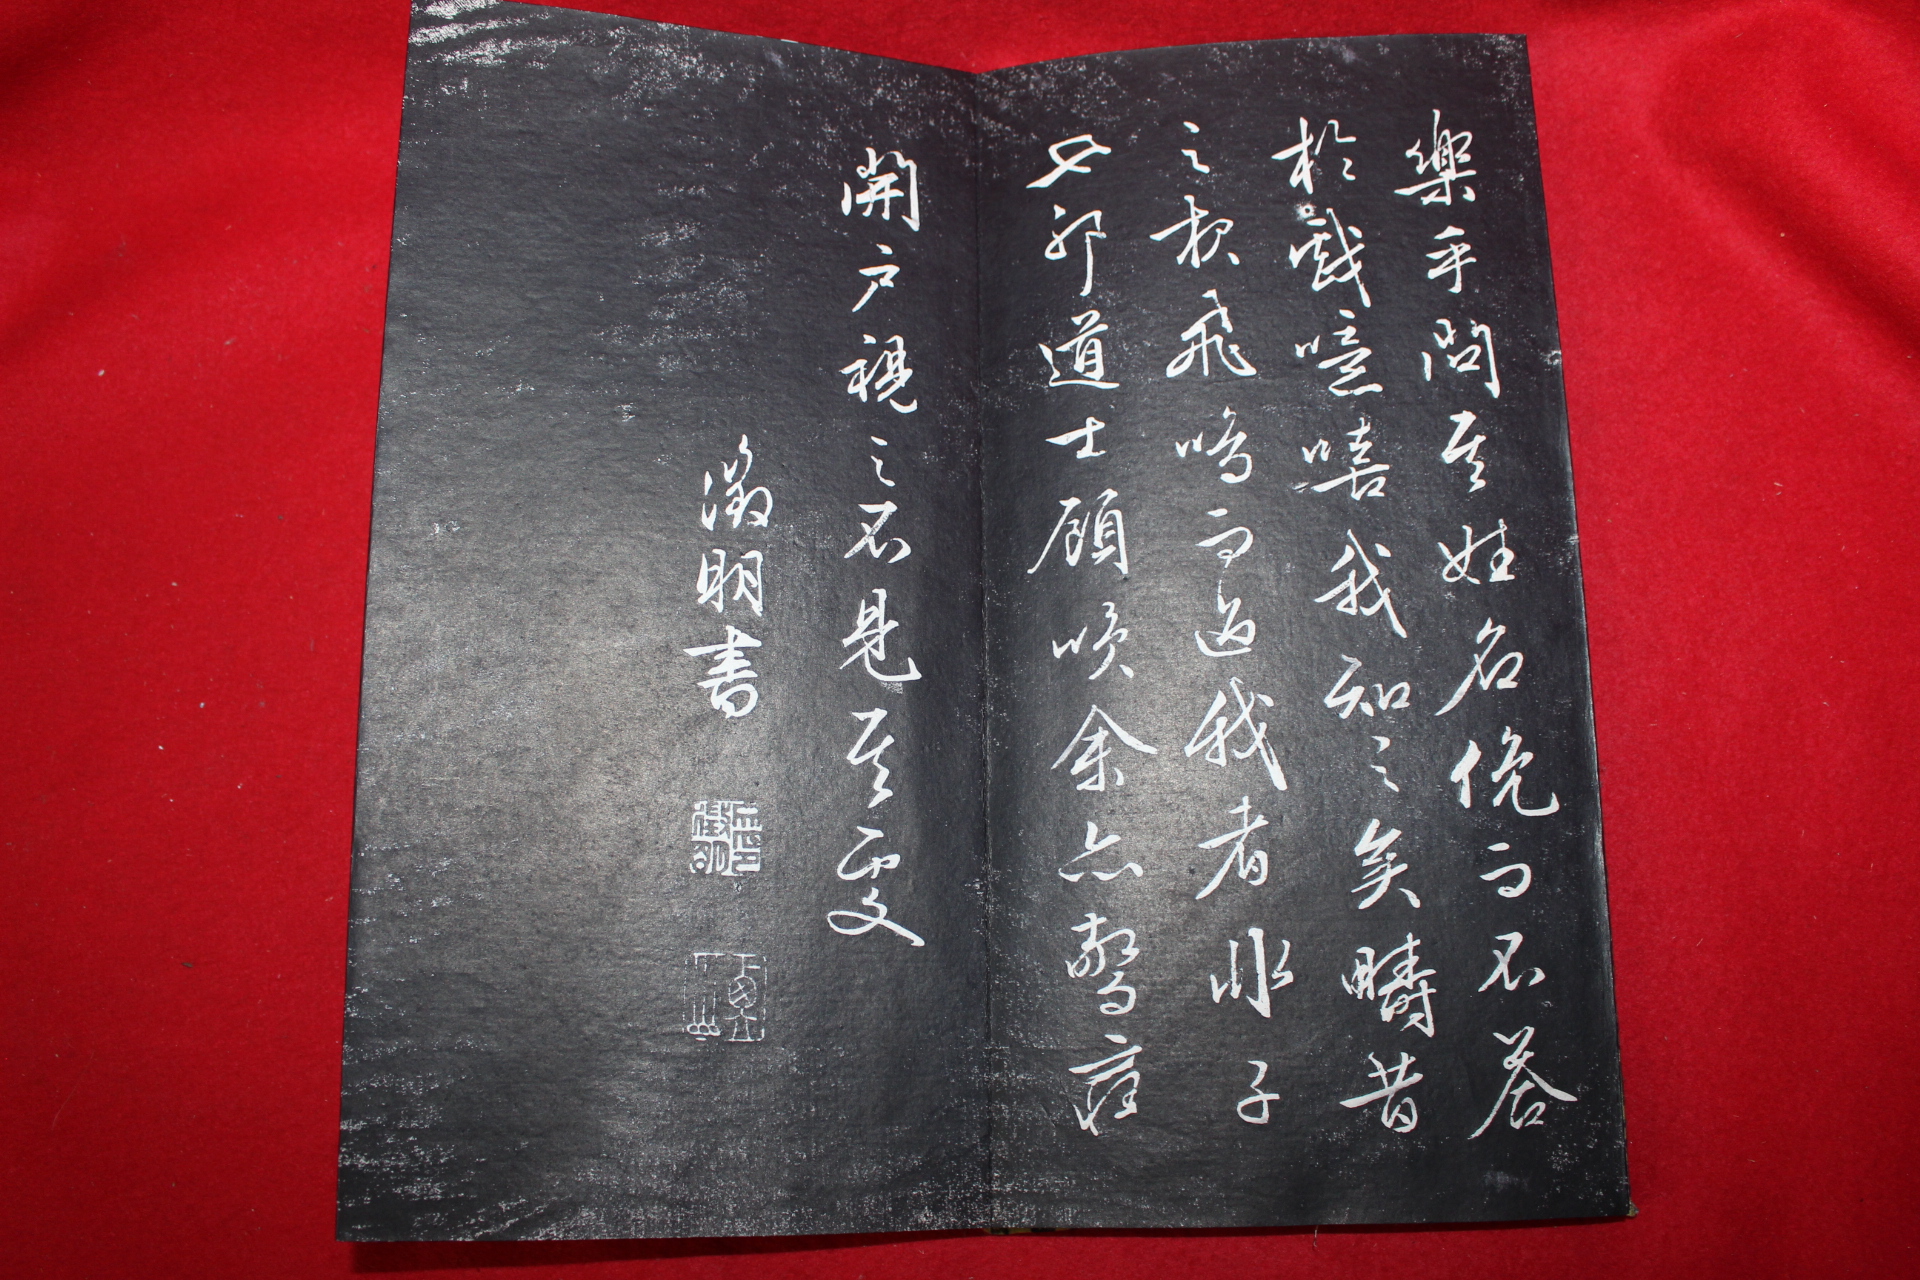 樂乎問其姓名俛而不荅
於戲噫嘻我知之矣疇昔
之夜飛鳴而過我者非子
也邪道士顧唉余亦驚寤
開户視之不見其處
徵明書